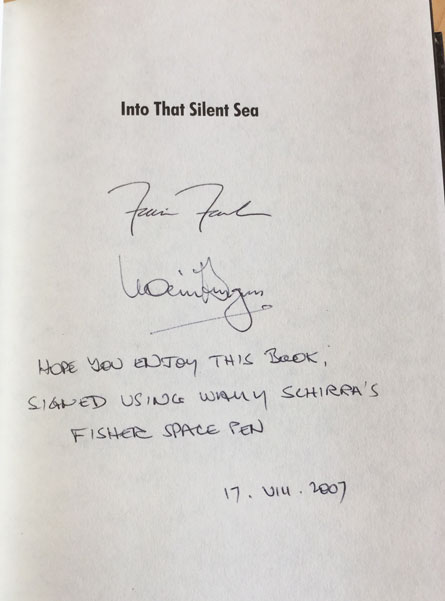 Into That Silent Sea
HOPE YOU ENJOY THIS BOOK,
SIGNED USING WALLY SCHIRRA'S
FISHER SPACE PEN
17. VIII. 2007